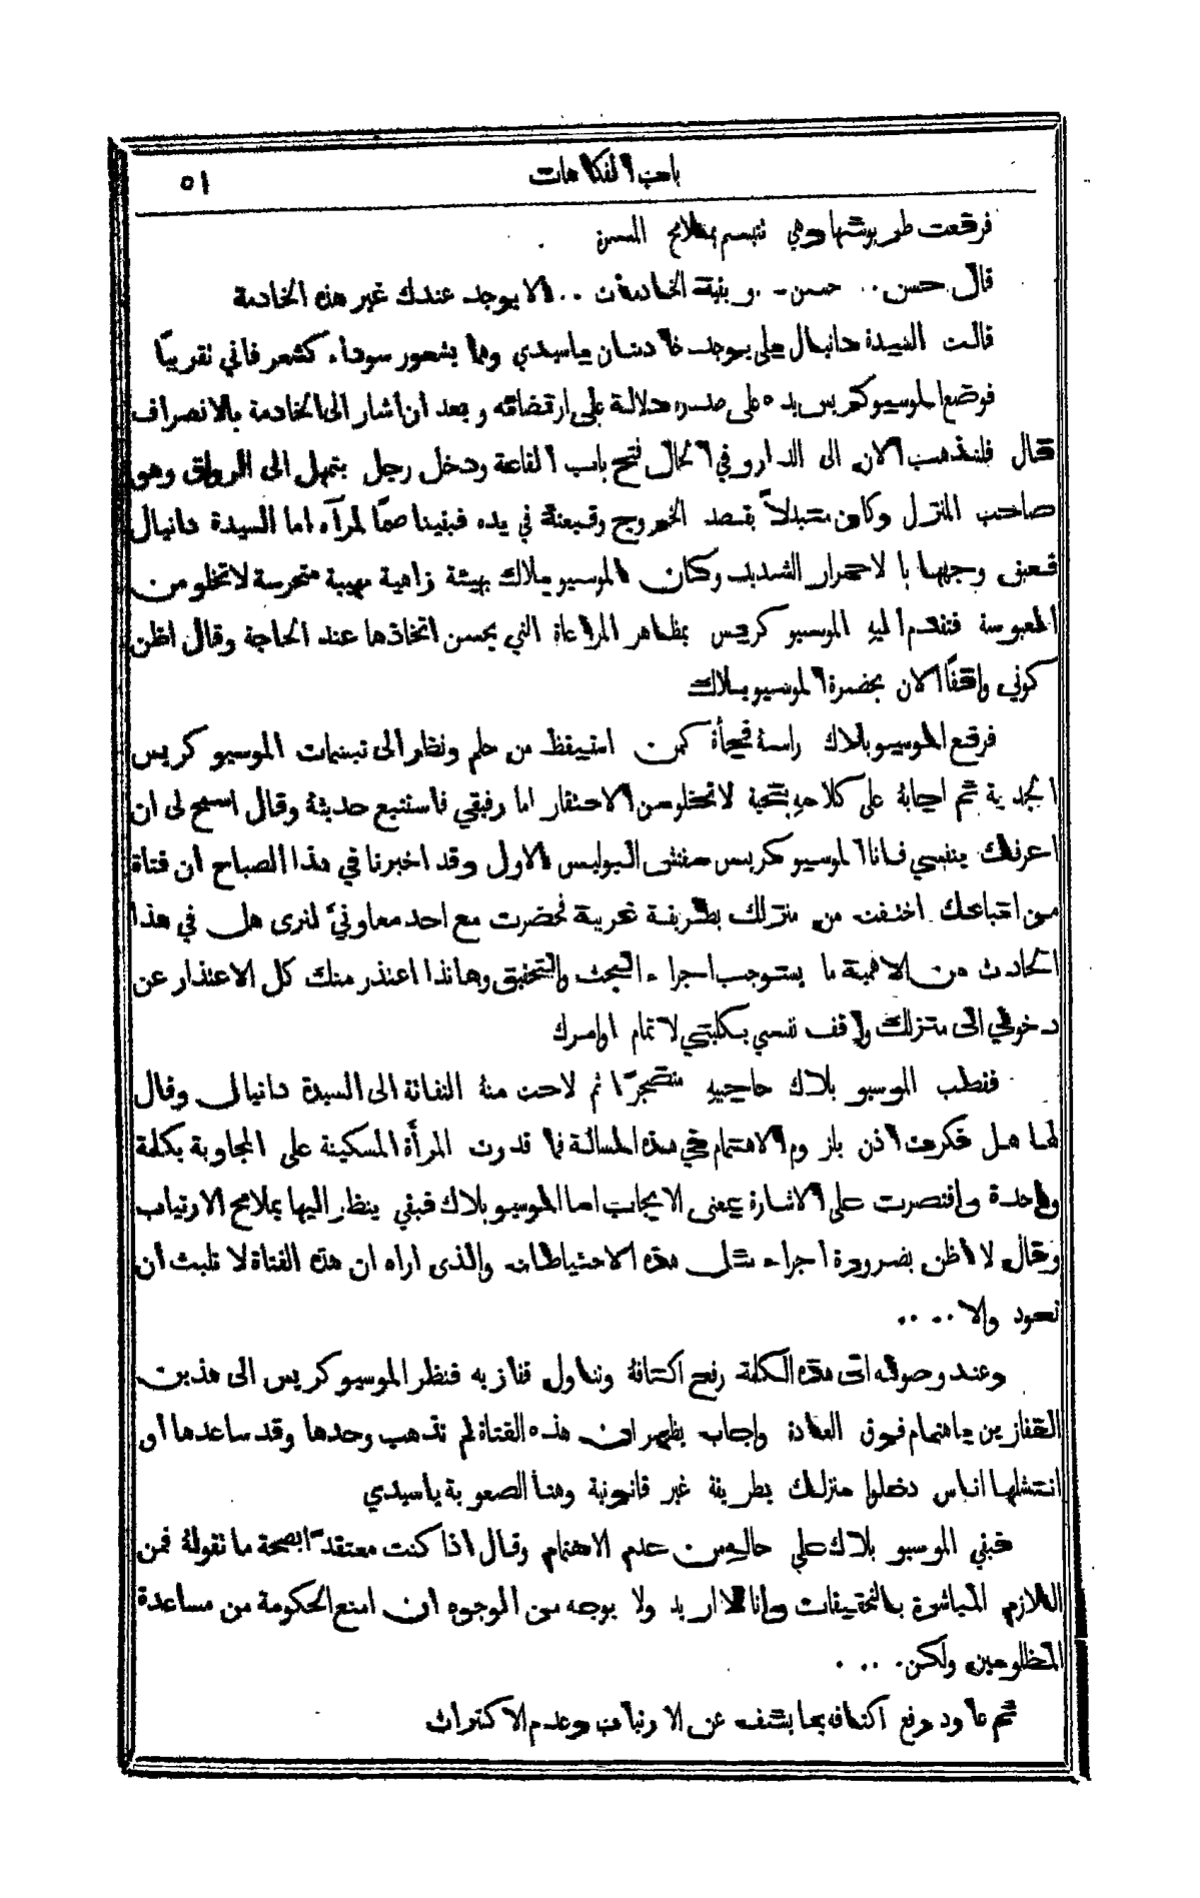 باب الفكاهات
٥١
فرفعت طربوشها وهي تتبسم بملامح المسرة
قال حسن .. حسن .. وبقية الخادمات .. ألا يوجد عندك غير هذه الخادمة
قالت السيدة دانيال بلى يوجد خادمتان ياسيدي وهما بشعور سوداء كشعر فاني تقريبًا
فوضع الموسيو كريس يده على صدره دلالة على ارتضائه وبعد ان اشار الى الخادمة بالانصراف
قال فلنذهب الان الى الدار وفي الحال فتح باب القاعة ودخل رجل بتمهل الى الرواق وهو
صاحب المنزل وكان متبدلاً بقصد الخروج وقبعته في يده فبقينا صمًّا لمرآه اما السيدة دانيال
فعبق وجهها بالاحمرار الشديد وكان الموسيو بلاك بهيئة زاهية مهيبة متحرسة لا تخلو من
العبوسة فتقدم اليه الموسيو كريس بمظاهر المراعاة التي يحسن اتخاذها عند الحاجة وقال اظن
كوني واقفًا الان بحضرة الموسيو بلاك
فرفع الموسيو بلاك راسه فجأة كمن استيقظ من حلم ونظر الى تبسمات الموسيو كريس
الجدية ثم اجابه على كلامه بتحية لا تخلو من الاحتقار اما رفيقي فاستتبع حديثه وقال اسمح لي ان
اعرفك بنفسي فانا الموسيو كريس مفتش البوليس الاول وقد اخبرنا في هذا الصباح ان فتاة
من اتباعك اختفت من منزلك بطريقة غريبة فحضرت مع احد معاونيَّ لنرى هل في هذا
الحادث من الاهمية ما يستوجب اجراء البحث والتحقيق وهانذا اعتذر منك كل الاعتذار عن
دخولي الى منزلك واقف نفسي بكليتي لاتمام اوامرك
فقطب الموسيو بلاك حاجبيه متضجرًا ثم لاحت منه التفاتة الى السيدة دانيال وقال
لها هل فكرت اذن بلزوم الاهتمام في هذه المسالة فما قدرت المرأة المسكينة على المجاوبة بكلمة
واحدة واقتصرت على الاشارة بمعنى الايجاب اما الموسيو بلاك فبقي ينظر اليها بملامح الارتياب
وقال لا اظن بضرورة اجراء مثل هذه الاحتياطات والذي اراه ان هذه الفتاة لا تلبث ان
تعود والا ....
وعند وصوله الى هذه الكلمة رفع اكتافه وتناول قفازيه فنظر الموسيو كريس الى هذين
القفازين باهتمام فوق العادة واجاب يظهر ان هذه الفتاة لم تذهب وحدها وقد ساعدها او
انتشلها اناس دخلوا منزلك بطريقة غير قانونية وهنا الصعوبة ياسيدي
فبقي الموسيو بلاك على حاله من عدم الاهتمام وقال اذا كنت معتقدًا بصحة ما تقوله فمن
اللازم المباشرة بالتحقيقات وانا لا اريد ولا بوجه من الوجوه ان امنع الحكومة من مساعدة
المظلومين ولكن ....
ثم عاود رفع اكتافه بما يشف عن الارتياب وعدم الاكتراث